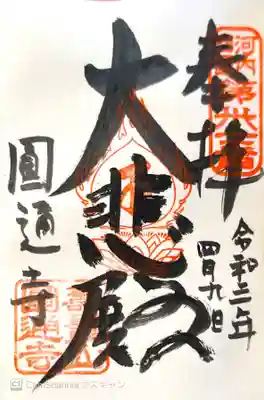 奉拝
河内
大悲殿
令和二年
四月九日
圓通寺
圓通寺
CS CamScanner でスキャン